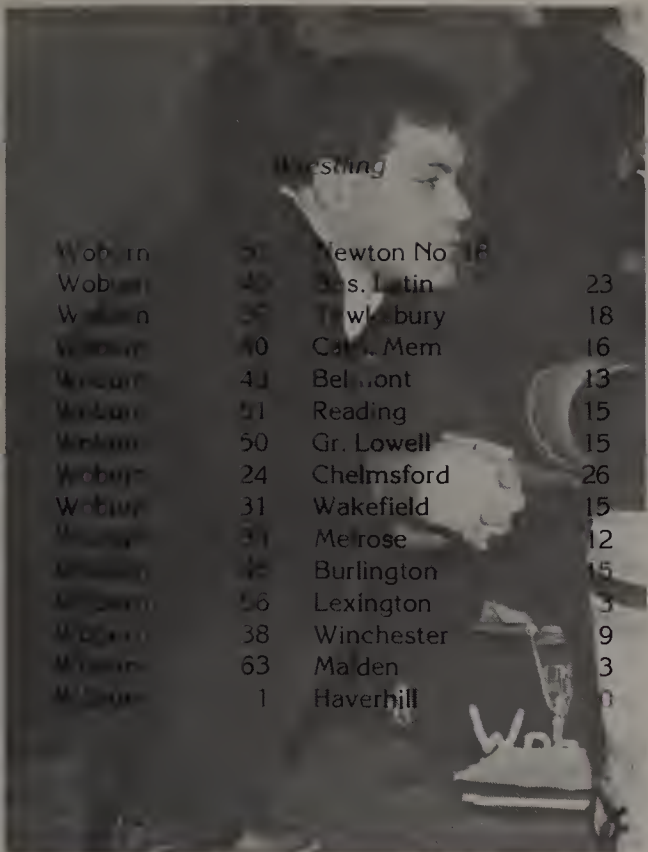 Wrestling
Woburn Newton No. 18
Woburn 40 Bos. Latin 23
Woburn Tewksbury 18
Woburn 40 Cath. Mem 16
Woburn 43 Belmont 13
Woburn 51 Reading 15
Woburn 50 Gr. Lowell 15
Woburn 24 Chelmsford 26
Woburn 31 Wakefield 15
Woburn Melrose 12
Woburn Burlington 15
Woburn 56 Lexington 3
Woburn 38 Winchester 9
Woburn 63 Malden 3
Woburn 1 Haverhill 0
Wob